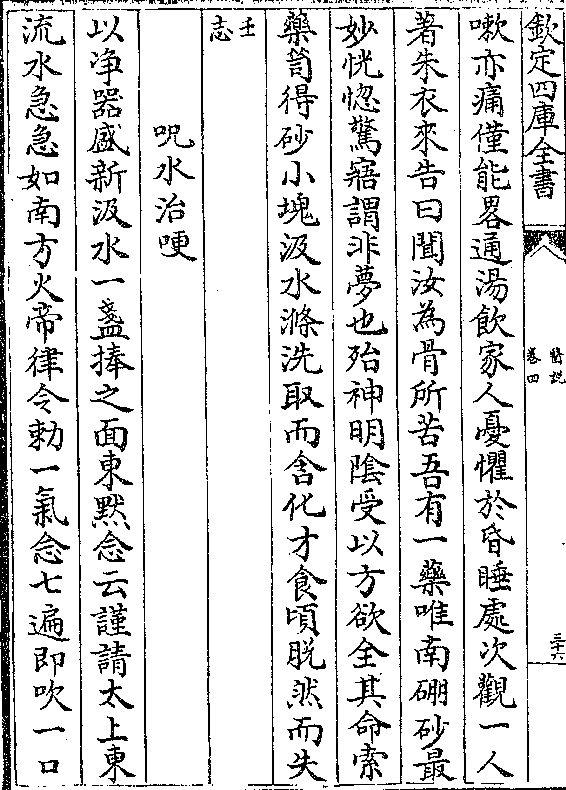 欽定四庫全書
醫說
卷四
三十六
嗽亦痛僅能畧通湯飲家人憂懼於昏睡處次觀一人
著朱衣來告曰聞汝為骨所苦吾有一藥唯南硼砂最
妙恍惚驚寤謂非夢也殆神明隂受以方欲全其命索
藥笥得砂小塊汲水滌洗取而含化才食頃脱然而失
壬
志
呪水治哽
以净器盛新汲水一盞捧之面東黙念云謹請太上東
流水急急如南方火帝律令勅一氣念七遍即吹一口